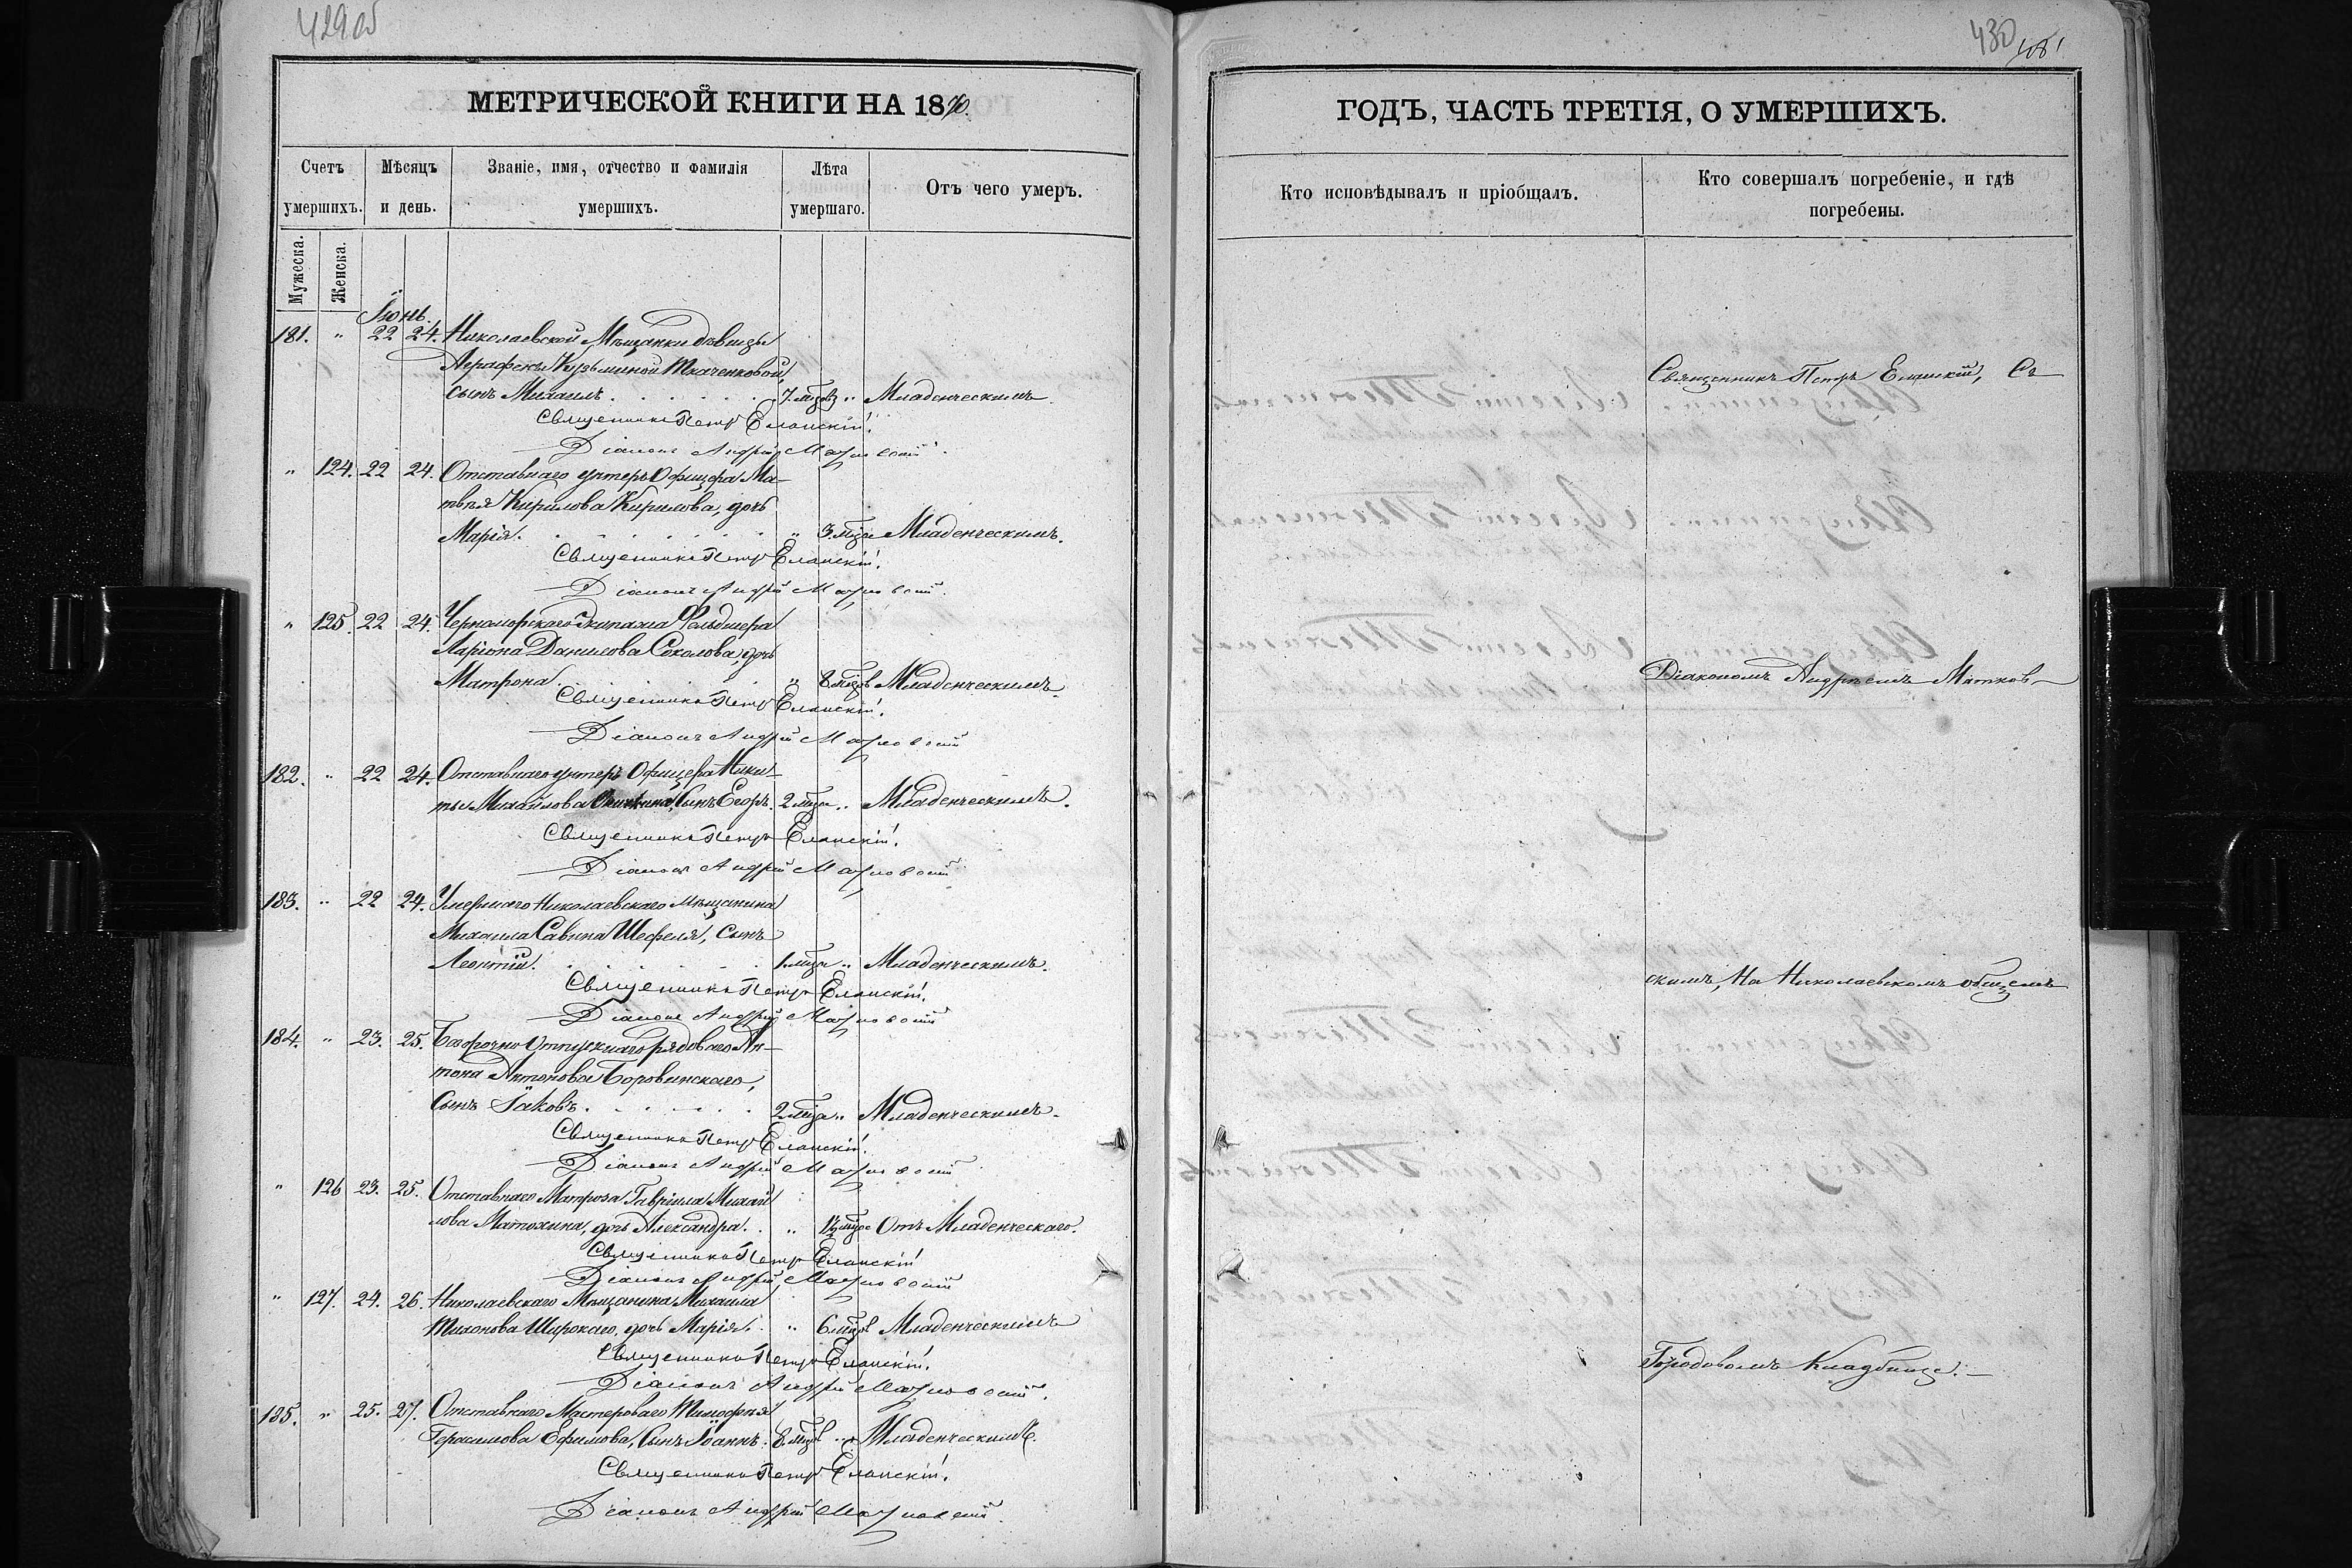 429об
МЕТРИЧЕСКОЙ КНИГИ НА 1870.
Счетъ умершихъ.
Мѣсяцъ и день.
Званіе, имя, отчество и фамилія умершихъ.
Лѣта умершаго.
Отъ чего умеръ.
Мужеска.
Женска.
Іюнь.
181. " 22 24. Николаевской Мѣщанки дѣвицы
Аграфены Кузьминой Ткаченковой,
сынъ Михаилъ. 7. мцовъ " Младенческимъ.
Священникъ Петръ Еланскій.
Діаконъ Андрей Матковскій
" 124. 22 24. Отставнаго унтеръ Офицера Ма-
твѣя Кирилова Кирилова, дочь
Марія. " 3. мца Младенческимъ.
Священникъ Петръ Еланскій.
Діаконъ Андрей Матковскій.
" 125. 22 24. Черноморскаго Экипажа Фельдшера
Ларіона Данилова Соколова, дочь
Матрона. " 8 мцовъ Младенческимъ.
Священникъ Петръ Еланскій.
Діаконъ Андрей Матковскій
182. " 22 24. Отставнаго унтеръ Офицера Ники-
ты Михайлова Сынъ Егоръ. 2 мца " Младенческимъ.
Священникъ Петръ Еланскій.
Діаконъ Андрей Матковскій
183. " 22 24. Умершаго Николаевскаго Мѣщанина
Михаила Савина Шефеля, Сынъ
Леонтій. 1. мца " Младенческимъ.
Священникъ Петръ Еланскій.
Діаконъ Андрей Матковскій
184. " 23. 25. Безсрочно Отпускнаго рядоваго Ан-
тона Антонова Боровинскаго,
Сынъ Іаковъ. 2 мца " Младенческимъ.
Священникъ Петръ Еланскій.
Діаконъ Андрей Матковскій
" 126 23. 25. Отставнаго Матроза Гавріила Михай
лова Матохина, дочь Александра. " 1½ мца Отъ Младенческаго.
Священникъ Петръ Еланскій
Діаконъ Андрей Матковскій
" 127. 24. 26. Николаевскаго Мѣщанина Михаила
Тихонова Широкаго, дочь Марія. " 6 мцовъ Младенческимъ
Священникъ Петръ Еланскій.
Діаконъ Андрей Матковскій.
185. " 25. 27. Отставнаго Мастероваго Тимофѣя
Герасимова Ефимова, Сынъ Іоаннъ. 8. мцовъ " Младенческимъ.
Священникъ Петръ Еланскій.
Діаконъ Андрей Матковскій.
430
ГОДЪ, ЧАСТЬ ТРЕТІЯ, О УМЕРШИХЪ.
Кто исповѣдывалъ и пріобщалъ.
Кто совершалъ погребеніе, и гдѣ погребены.
Священникъ Петръ Еланскій, Съ
Діакономъ Андреемъ Матков-
скимъ, На Николаевскомъ общемъ
Городовомъ Кладбище.